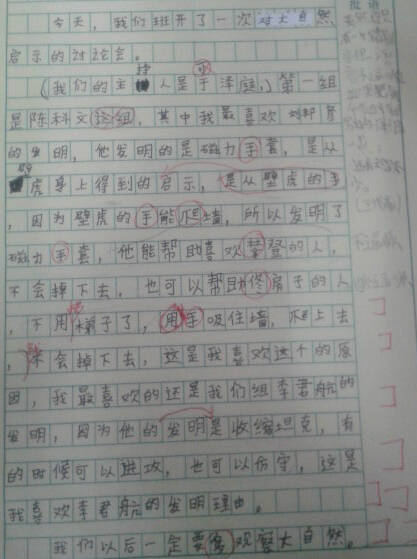 今天，我们班开了一次对大自然
启示的讨论会。
（我们的主持人是于泽庭，）第一组
是陈科文这组，其中我最喜欢刘郑
的发明，他发明的是磁力手套，是从
壁虎身上得到的启示，是从壁虎的手
，因为壁虎的手能爬墙，所以发明了
磁力手套，他能帮助喜欢攀登的人，
不会掉下去，也可以帮助修房子的人
，不用梯子了，用手吸住墙，爬上去
，不会掉下去，这是我喜欢这个的原
因，我最喜欢的还是我们组李君航的
发明，因为他的发明是收缩坦克，有
的时候可以进攻，也可以防守，这是
我喜欢李君航的发明理由。
我们以后一定要多观察大自然。
批语